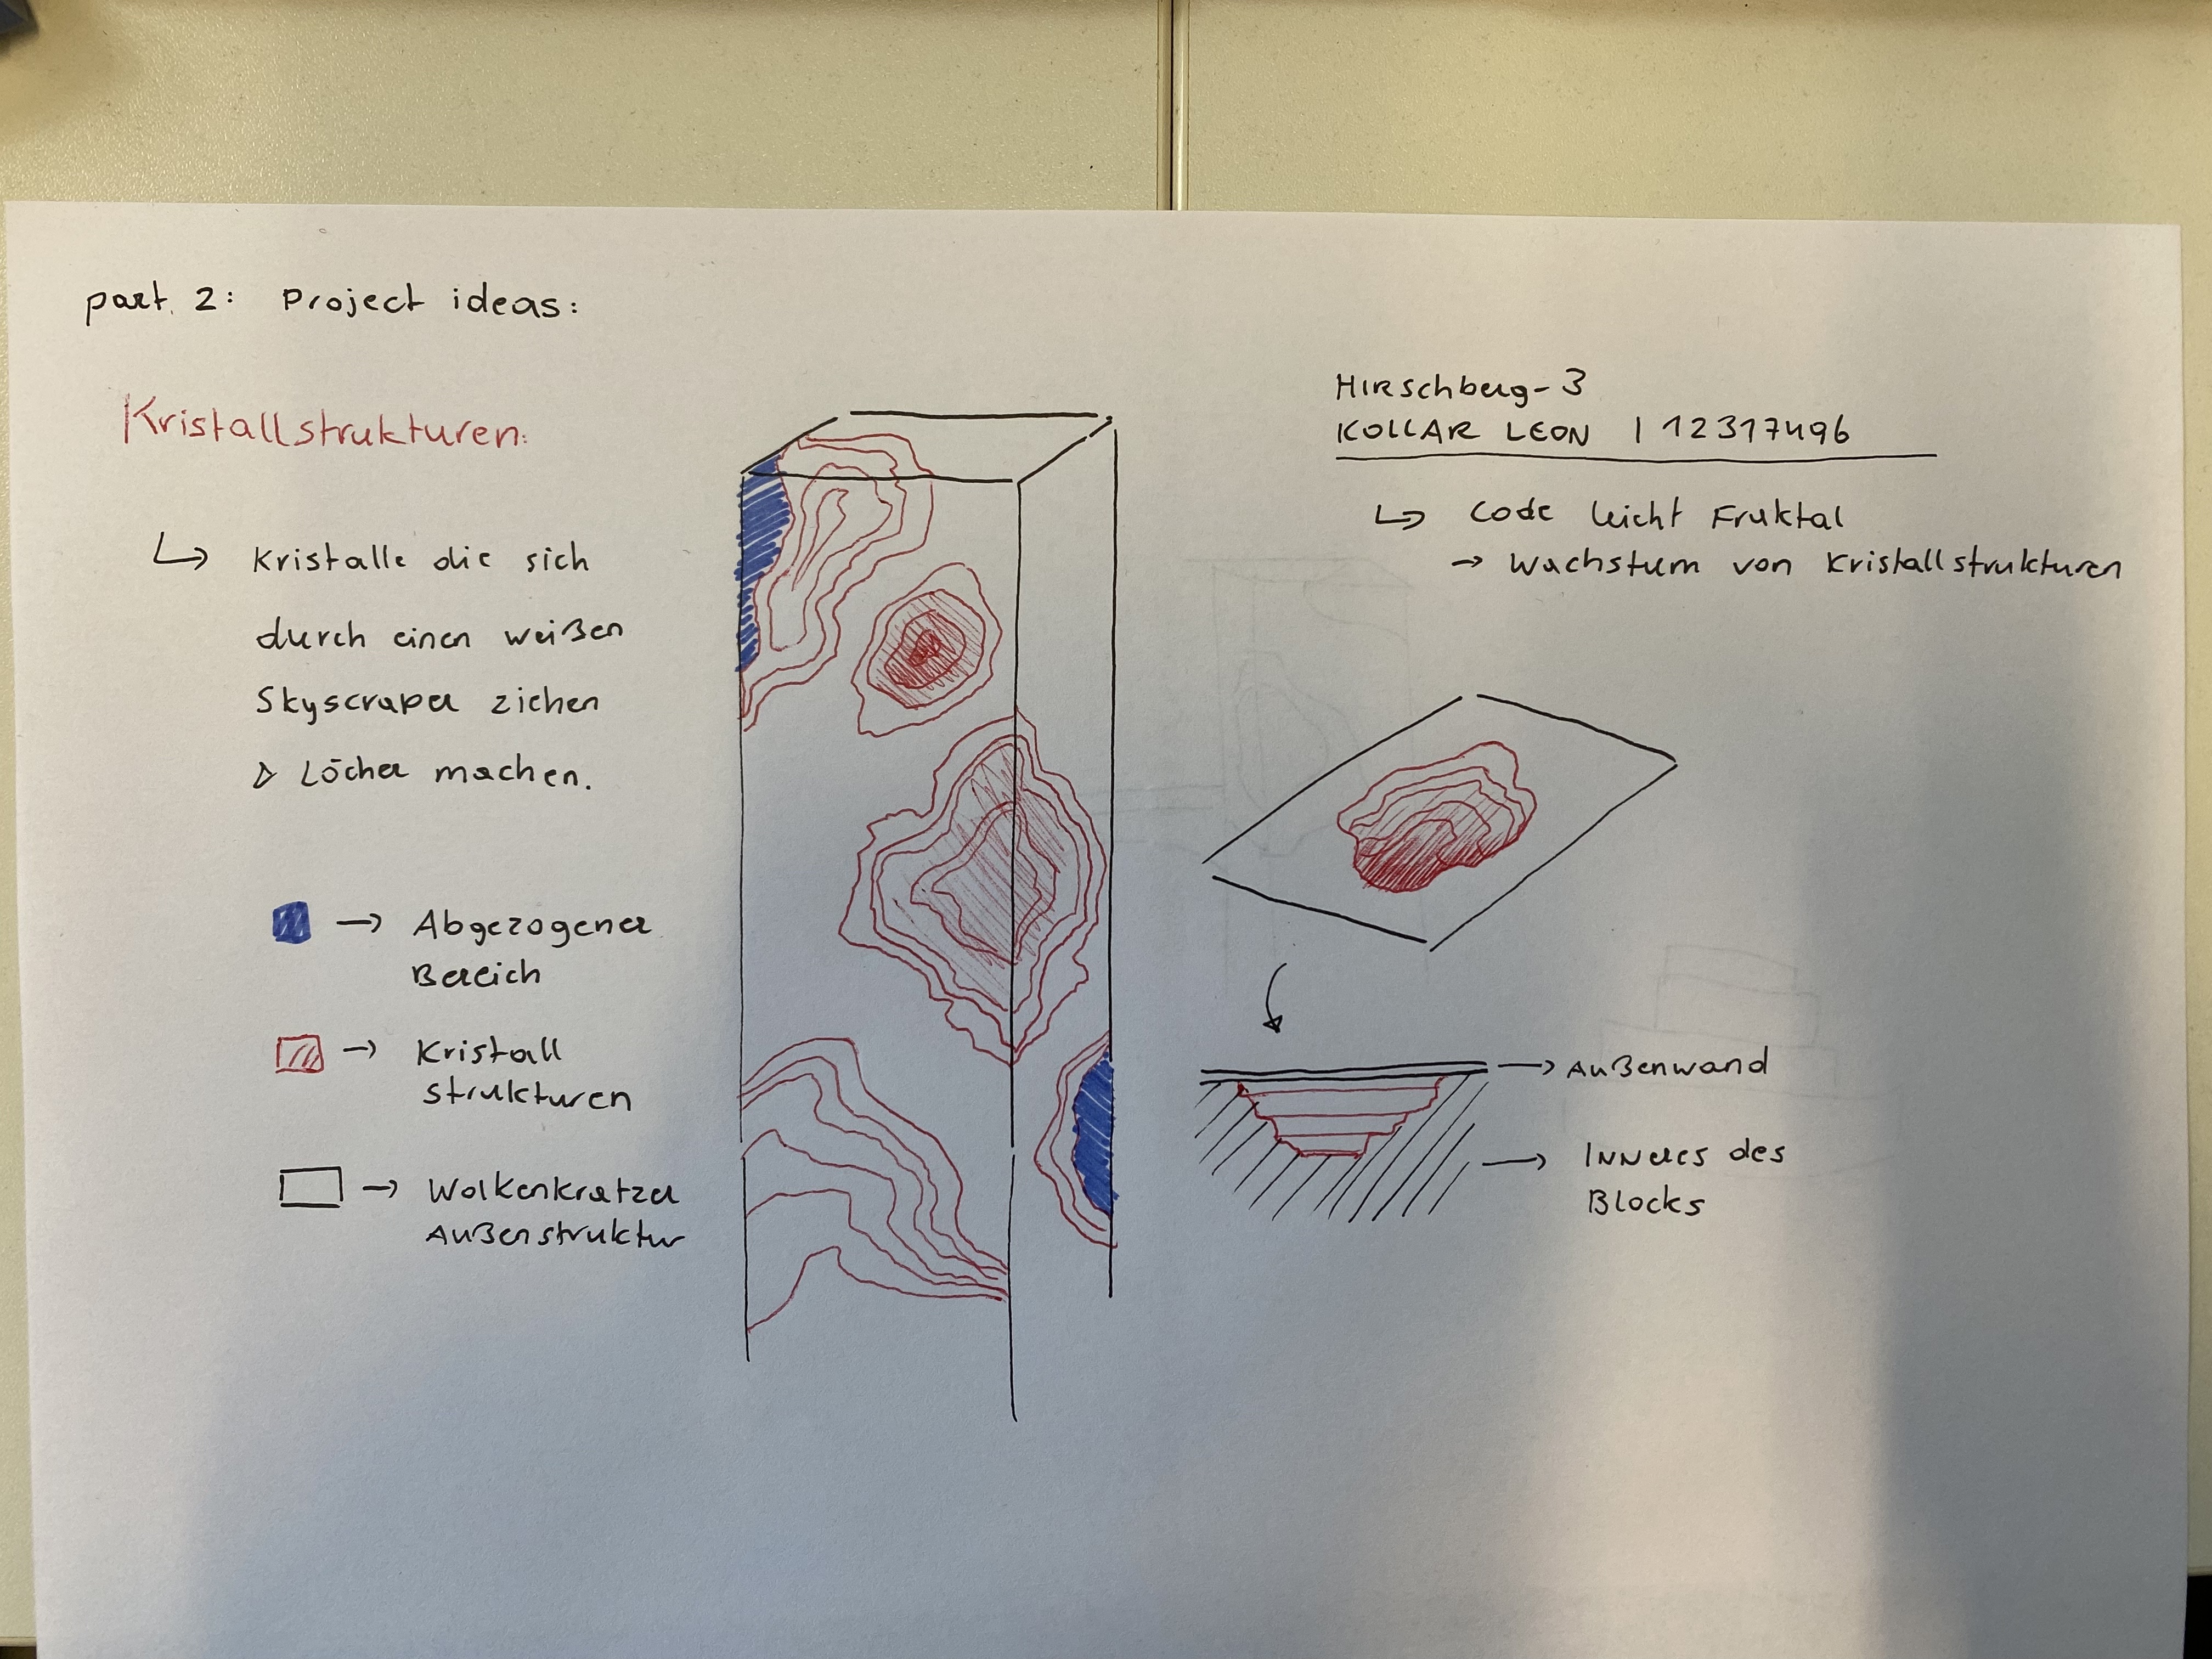 part. 2: Project ideas:
Kristallstrukturen:
↳ Kristalle die sich
durch einen weißen
Skyscraper ziehen
▷ Löcher machen.
→ Abgezogener
Bereich
→ Kristall
strukturen
→ Wolkenkratzer
Außenstruktur
Hirschberg-3
KOLLAR LEON | 12317496
↳ Code leicht Fruktal
→ Wachstum von Kristallstrukturen
→ Außenwand
→ Inneres des
Blocks